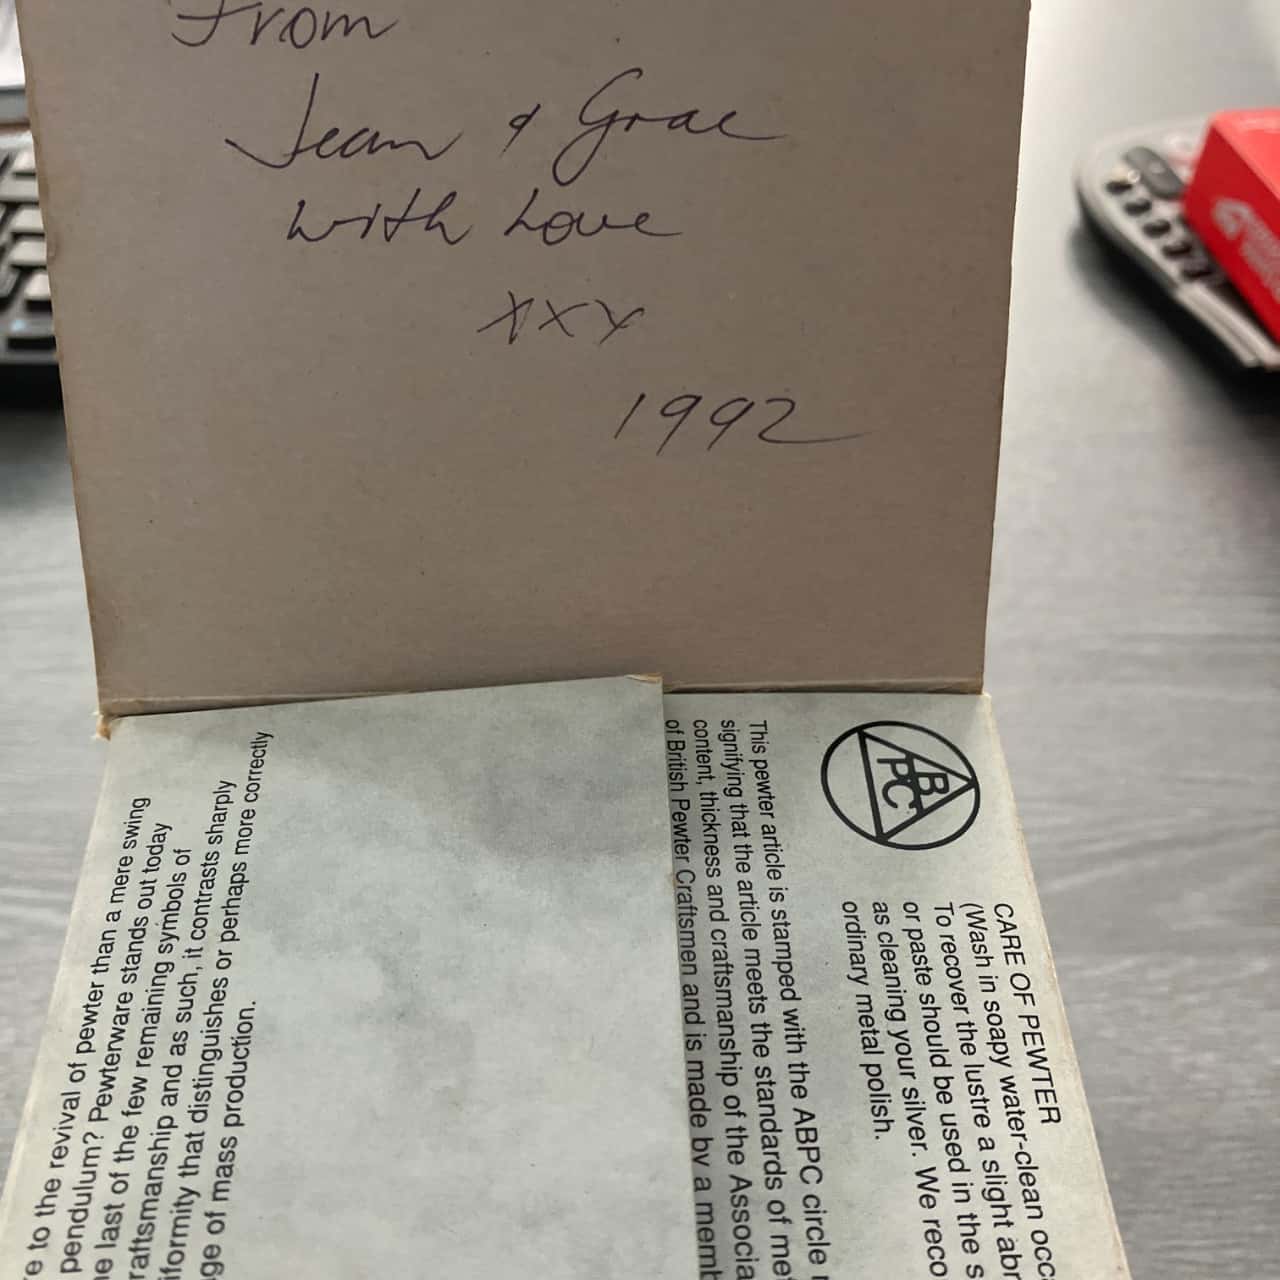 From
Jean & Grae
with Love
xxx
1992
ABPC
CARE OF PEWTER
(Wash in soapy water-clean occ
To recover the lustre a slight abr
or paste should be used in the s
as cleaning your silver. We reco
ordinary metal polish.
This pewter article is stamped with the ABPC circle
signifying that the article meets the standards of met
content, thickness and craftsmanship of the Associa
of British Pewter Craftsmen and is made by a memb
e to the revival of pewter than a mere swing
pendulum? Pewterware stands out today
e last of the few remaining symbols of
raftsmanship and as such, it contrasts sharply
iformity that distinguishes or perhaps more correctly
ge of mass production.